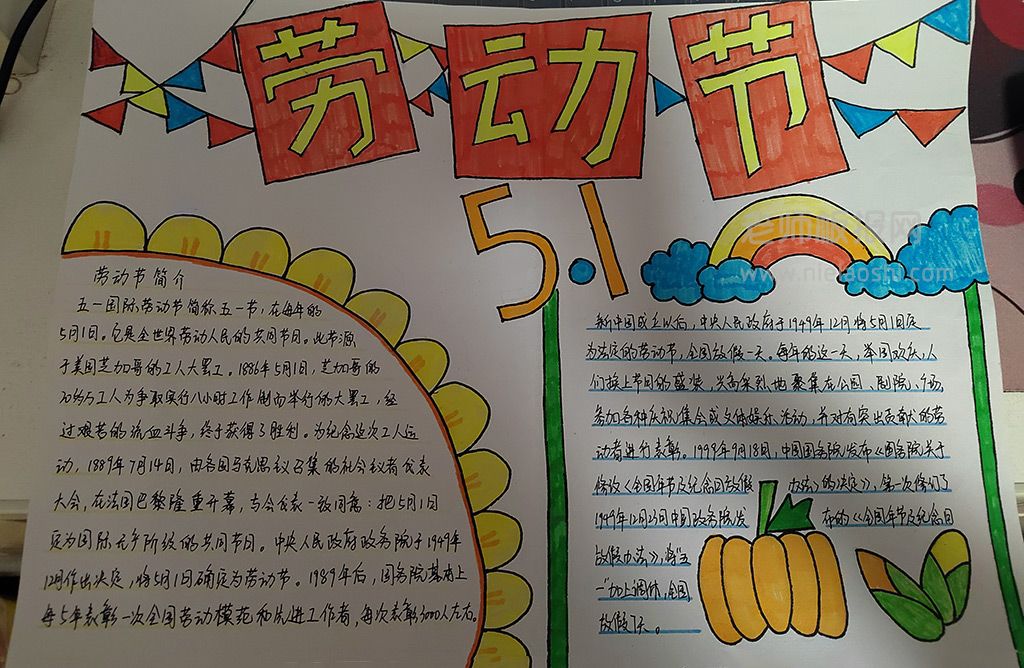 劳动节
5.1
劳动节简介
五一国际劳动节简称五一节，在每年的
5月1日。它是全世界劳动人民的共同节日。此节源
于美国芝加哥的工人大罢工。1886年5月1日，芝加哥的
20多万工人为争取实行八小时工作制而举行的大罢工，经
过艰苦的流血斗争，终于获得了胜利。为纪念这次工人运
动，1889年7月14日，由各国马克思主义召集的社会主义者代表
大会，在法国巴黎隆重开幕，与会代表一致同意：把5月1日
定为国际无产阶级的共同节日。中央人民政府政务院于1949年
12月作出决定，将5月1日确定为劳动节。1989年后，国务院基本上
每5年表彰一次全国劳动模范和先进工作者，每次表彰3000人左右。
新中国成立以后，中央人民政府于1949年12月将5月1日定
为法定的劳动节，全国放假一天。每年的这一天，举国欢庆，人
们换上节日的盛装，兴高采烈地聚集在公园、剧院、广场，
参加各种庆祝集会或文体娱乐活动，并对有突出贡献的劳
动者进行表彰。1999年9月18日，中国国务院发布《国务院关于
修改《全国年节及纪念日放假办法》的决定》，第一次修订了
1949年12月23日中国政务院发布的《全国年节及纪念日
放假办法》，将"五
一"加上调休，全国
放假7天。
老师板报网